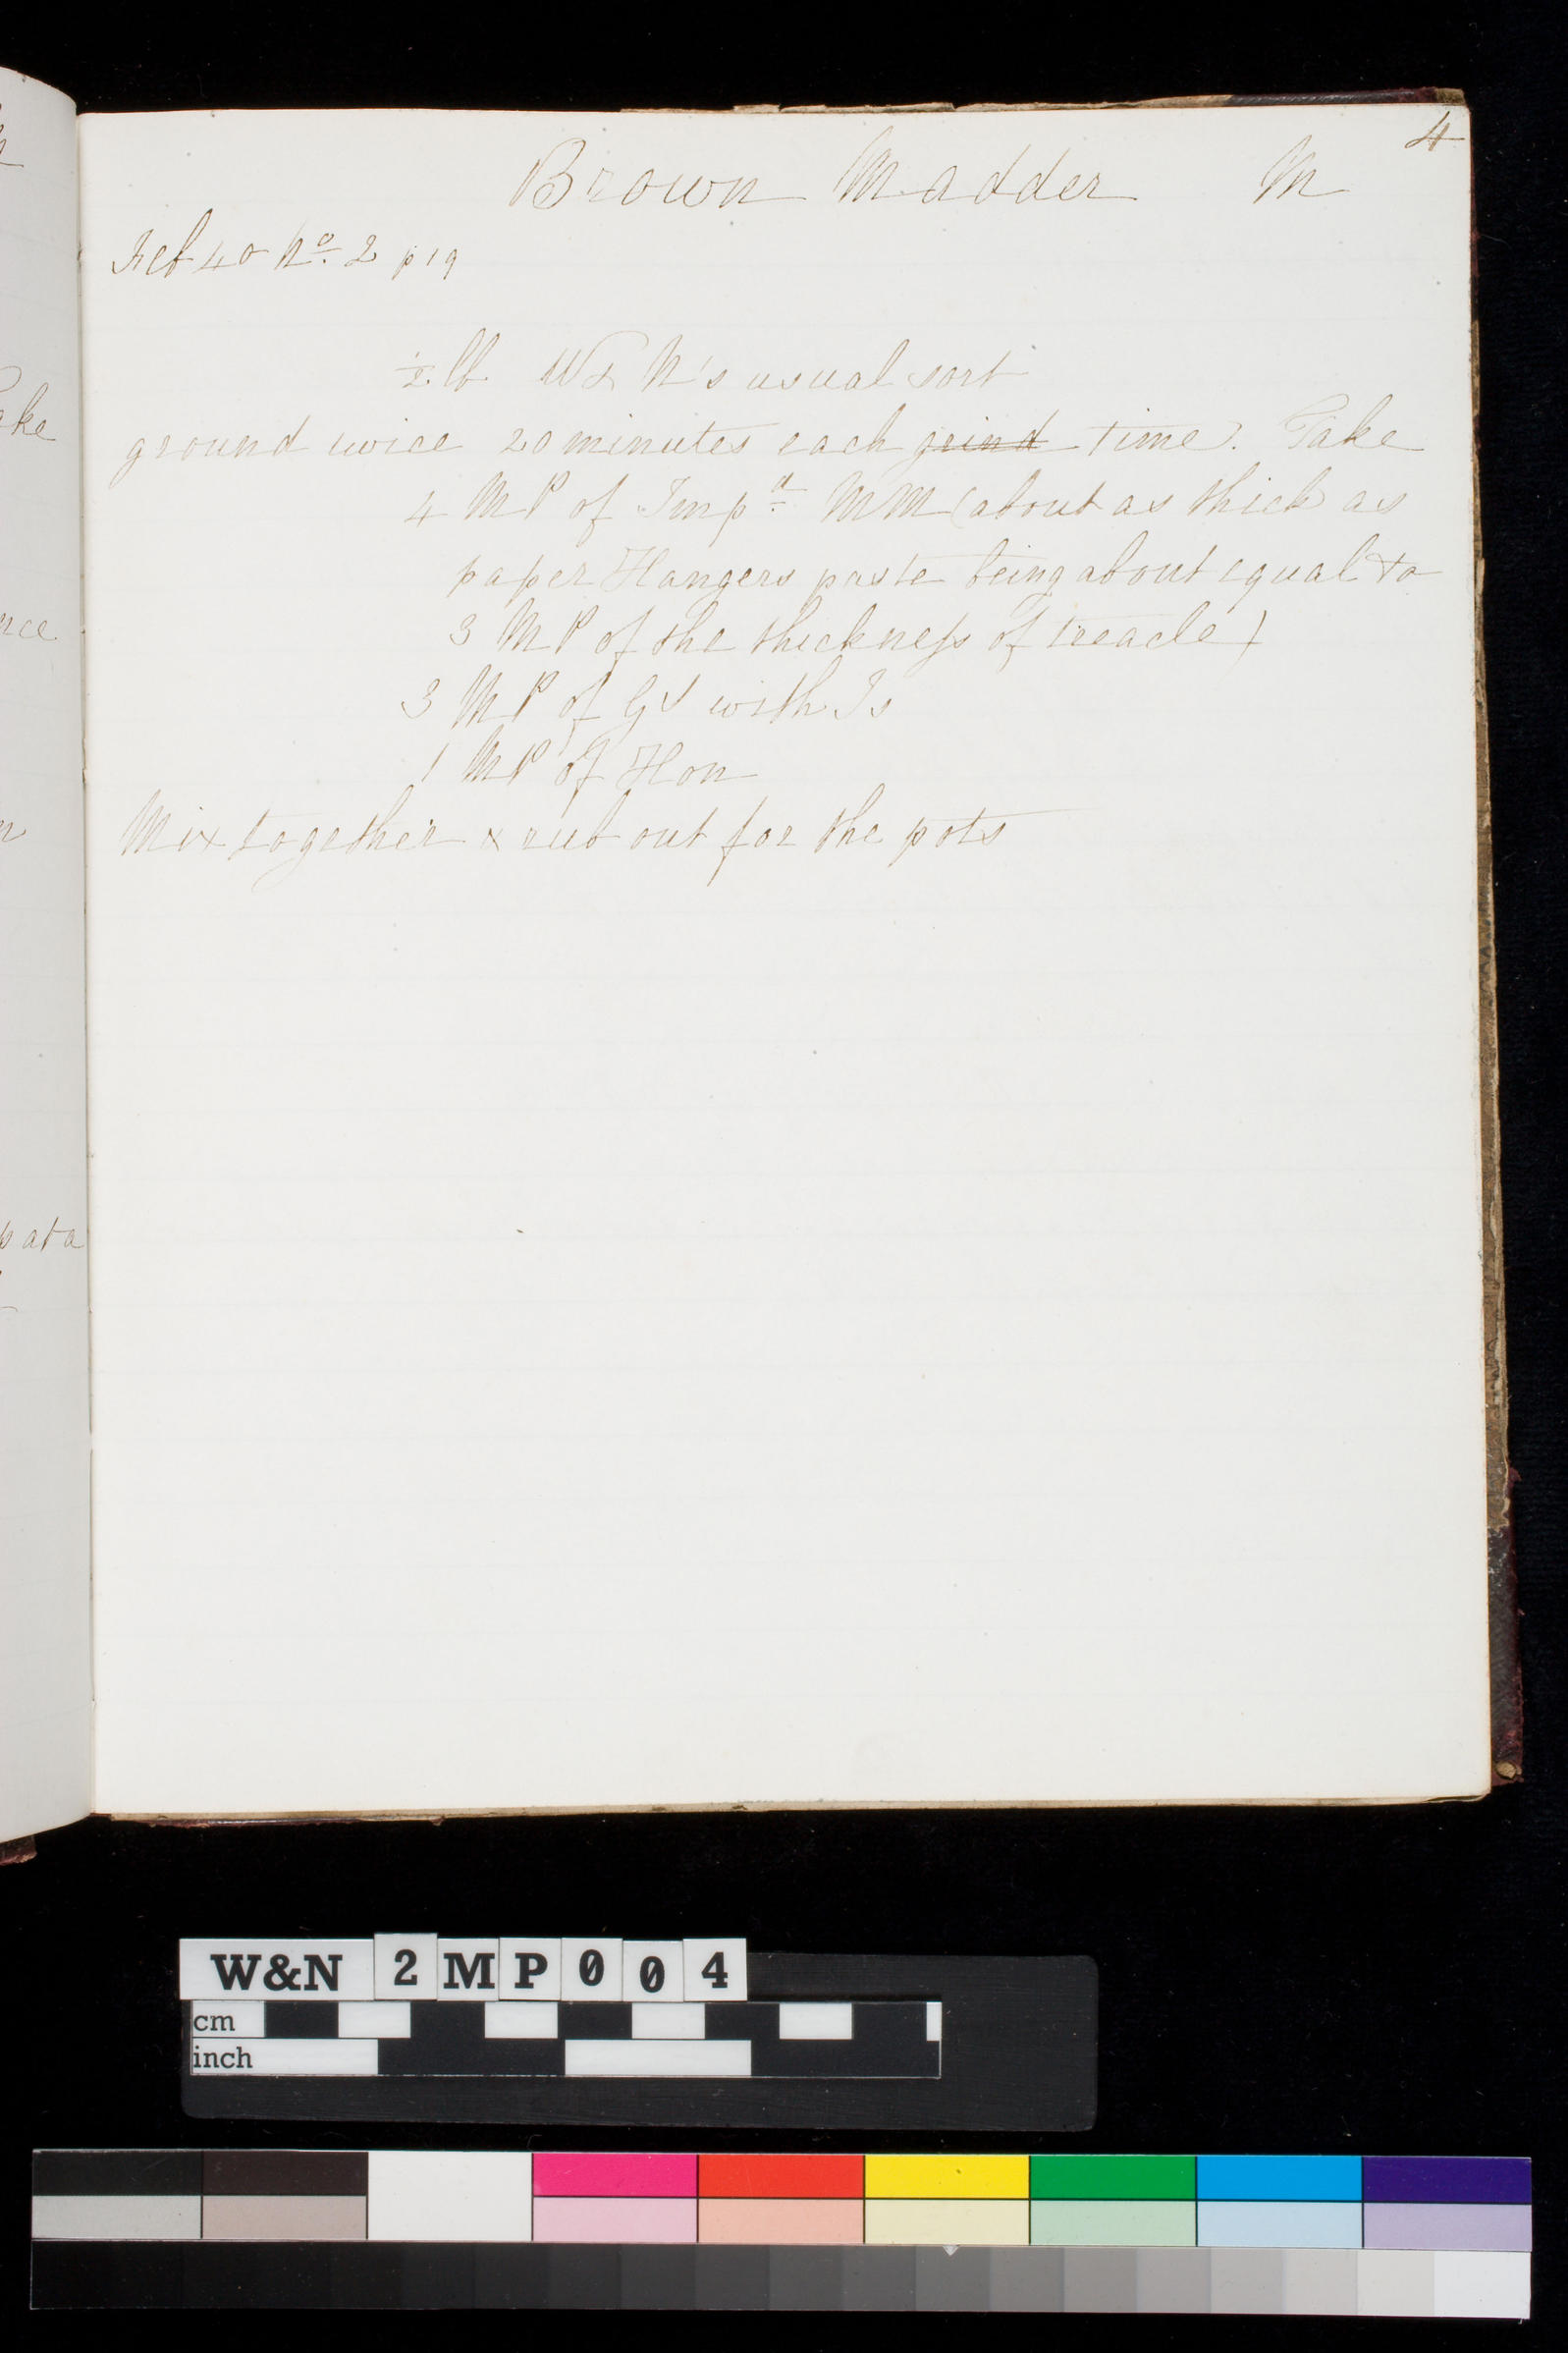 4
Brown Madder M
Feb 40 No. 2 p 19
1/2 lb W & N's usual sort
ground twice 20 minutes each grind time. Take
4 MP of Impd MM (about as thick as
paper Hangers paste being about equal to
3 MP of the thickness of treacle)
3 MP of GV with Is
1 MP of Hon
Mix together & rub out for the pots
ake
nce
n
p at a
W&N 2 M P 0 0 4
cm
inch